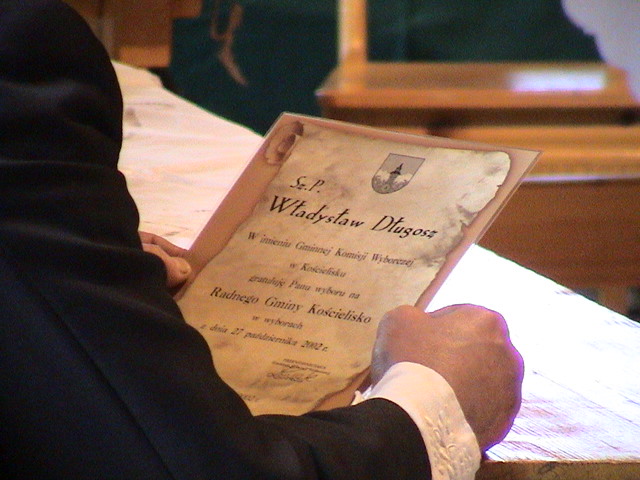 Sz.P.
Władysław Długosz
W imieniu Gminnej Komisji Wyborczej
w Kościelisku
gratuluję Panu wyboru na
Radnego Gminy Kościelisko
w wyborach
z dnia 27 października 2002 r.